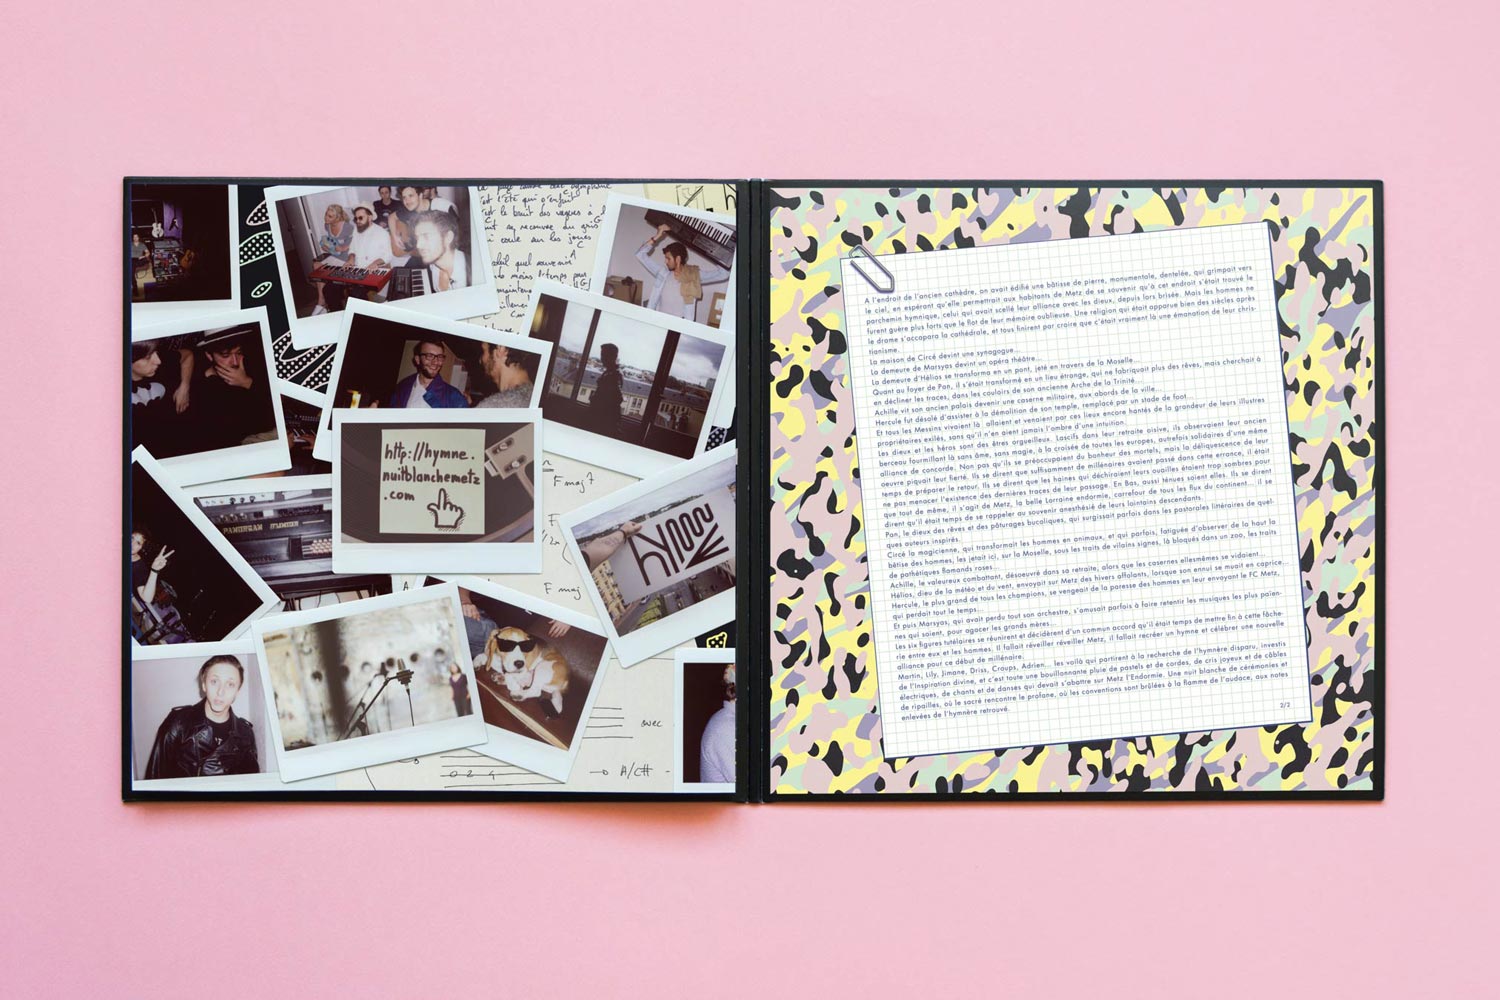 la page
c'est l'été qui s'enfuit
c'est le bruit des vagues à
on se recouvre du gris
coule sur les joues
C
soleil quel souvenir
moins le temps pour
maintenant
http://hymne.
nuitblanchemetz
.com
F maj7
F maj
hymne
avec
A/C#
A l'endroit de l'ancien cathèdre, on avait édifié une bâtisse de pierre, monumentale, dentelée, qui grimpait vers
le ciel, en espérant qu'elle permettrait aux habitants de Metz de se souvenir qu'à cet endroit s'était trouvé le
parchemin hymnique, celui qui avait scellé leur alliance avec les dieux, depuis lors brisée. Mais les hommes ne
furent guère plus forts que le flot de leur mémoire oublieuse. Une religion qui était apparue bien des siècles après
le drame s'accapara la cathédrale, et tous finirent par croire que c'était vraiment là une émanation de leur chris-
tianisme.
La maison de Circé devint une synagogue...
La demeure de Marsyas devint un opéra théâtre...
La demeure d'Hélios se transforma en un pont, jeté en travers de la Moselle...
Quant au foyer de Pan, il s'était transformé en un lieu étrange, qui ne fabriquait plus des rêves, mais cherchait à
en décliner les traces, dans les couloirs de son ancienne Arche de la Trinité...
Achille vit son ancien palais devenir une caserne militaire, aux abords de la ville...
Hercule fut désolé d'assister à la démolition de son temple, remplacé par un stade de foot...
Et tous les Messins vivaient là, allaient et venaient par ces lieux encore hantés de la grandeur de leurs illustres
propriétaires exilés, sans qu'il n'en aient jamais l'ombre d'une intuition.
Les dieux et les héros sont des êtres orgueilleux. Lascifs dans leur retraite oisive, ils observaient leur ancien
berceau fourmillant là sans âme, sans magie, à la croisée de toutes les europes, autrefois solidaires d'une même
alliance de concorde. Non pas qu'ils se préoccupaient du bonheur des mortels, mais la déliquescence de leur
oeuvre piquait leur fierté. Ils se dirent que suffisamment de millénaires avaient passé dans cette errance, il était
temps de préparer le retour. Ils se dirent que les haines qui déchiraient leurs ouailles étaient trop sombres pour
ne pas menacer l'existence des dernières traces de leur passage. En Bas, aussi ténues soient elles. Ils se dirent
que tout de même, il s'agit de Metz, la belle Lorraine endormie, carrefour de tous les flux du continent... il se
dirent qu'il était temps de se rappeler au souvenir anesthésié de leurs lointains descendants.
Pan, le dieux des rêves et des pâturages bucoliques, qui surgissait parfois dans les pastorales littéraires de quel-
ques auteurs inspirés.
Circé la magicienne, qui transformait les hommes en animaux, et qui parfois, fatiguée d'observer de la haut la
bêtise des hommes, les jetait ici, sur la Moselle, sous les traits de vilains signes, là bloqués dans un zoo, les traits
de pathétiques flamands roses...
Achille, le valeureux combattant, désoeuvré dans sa retraite, alors que les casernes ellesmêmes se vidaient...
Hélios, dieu de la météo et du vent, envoyait sur Metz des hivers affolants, lorsque son ennui se muait en caprice.
Hercule, le plus grand de tous les champions, se vengeait de la paresse des hommes en leur envoyant le FC Metz,
qui perdait tout le temps...
Et puis Marsyas, qui avait perdu tout son orchestre, s'amusait parfois à faire retentir les musiques les plus païen-
nes qui soient, pour agacer les grands mères...
Les six figures tutélaires se réunirent et décidèrent d'un commun accord qu'il était temps de mettre fin à cette fâche-
rie entre eux et les hommes. Il fallait réveiller réveiller Metz, il fallait recréer un hymne et célébrer une nouvelle
alliance pour ce début de millénaire.
Martin, Lily, Jimane, Driss, Croups, Adrien... les voilà qui partirent à la recherche de l'hymnère disparu, investis
de l'inspiration divine, et c'est toute une bouillonnante pluie de pastels et de cordes, de cris joyeux et de câbles
électriques, de chants et de danses qui devait s'abattre sur Metz l'Endormie. Une nuit blanche de cérémonies et
de ripailles, où le sacré rencontre le profane, où les conventions sont brûlées à la flamme de l'audace, aux notes
enlevées de l'hymnère retrouvé.
2/2